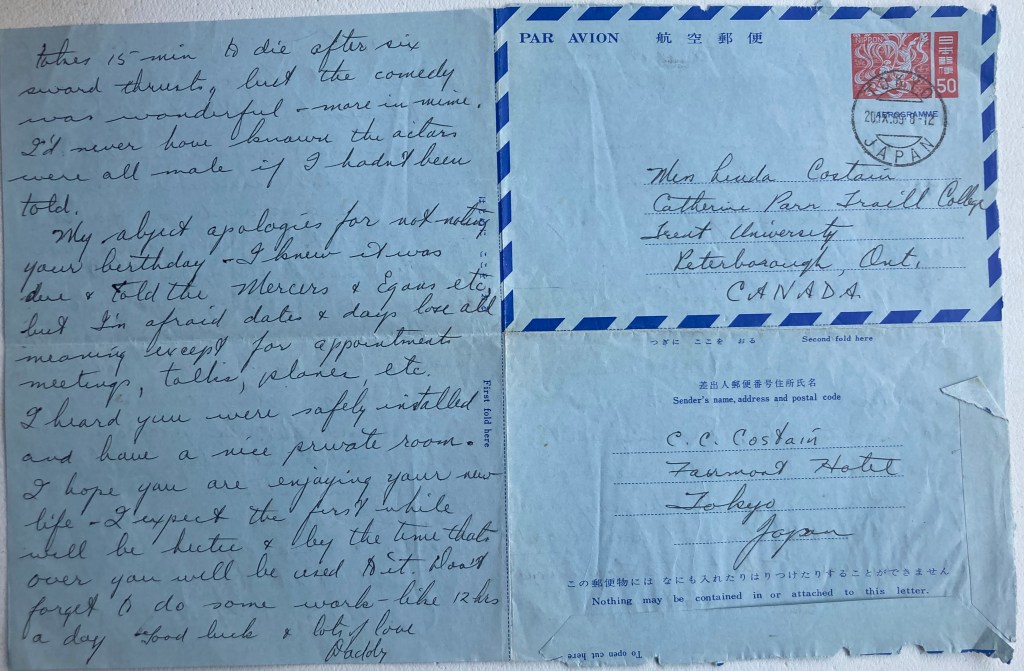 takes 15 min to die after six
sword thrusts, but the comedy
was wonderful - more in mime.
I'd never have known the actors
were all male if I hadn't been
told.
My abject apologies for not noting
your birthday - I knew it was
due & told the Mercers & Egans etc,
but I'm afraid dates & days lose all
meaning except for appointments
meetings, talks, planes, etc.
I heard you were safely installed
and have a nice private room.
I hope you are enjoying your new
life - I expect the first while
will be hectic & by the time that's
over you will be used to it. Don't
forget to do some work - like 12 hrs
a day Good luck & lots of love
Daddy
First fold here
PAR AVION 航空郵便
NIPPON
日本郵便
50
AEROGRAMME
TOKYO
JAPAN
Miss Linda Costain
Catherine Parr Traill College
Trent University
Peterborough, Ont.
CANADA
つぎに ここを おる Second fold here
差出人郵便番号住所氏名
Sender's name, address and postal code
C. C. Costain
Fairmont Hotel
Tokyo
Japan
この郵便物には なにも入れたりはりつけたりすることができません
Nothing may be contained in or attached to this letter.
To open cut here